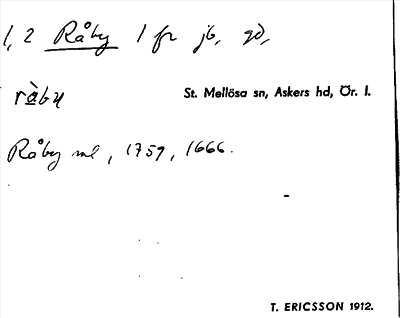 1, 2 Råby 1 fr jb, gd,
ràby
St. Mellösa sn, Askers hd, Ör. l.
Råby ml, 1759, 1666.
T. ERICSSON 1912.